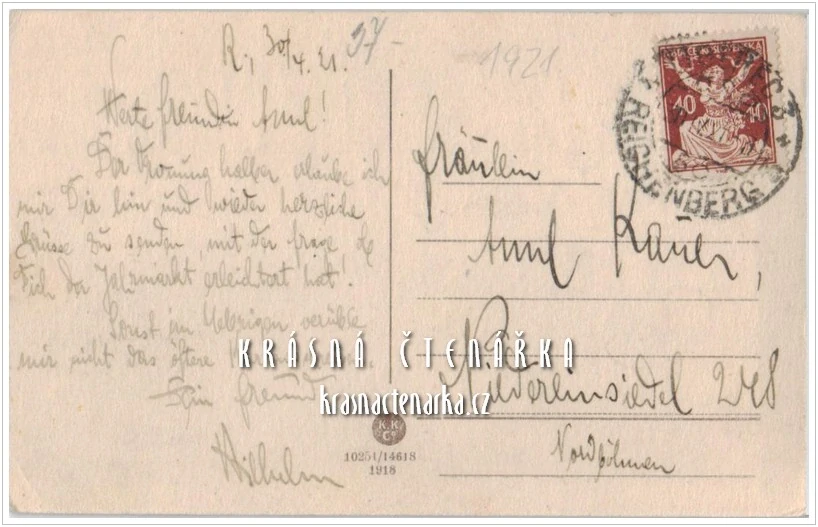 R., 30/4. 21.
37-
1921
Werte Freundin Aml!
Der Ordnung halber erlaube ich
mir Dir hin und wieder herzliche
Grüsse zu senden, mit der Frage ob
Dich der Jahrmarkt erleichtert hat!
Sonst im Uebrigen verüble
mir nicht das öftere
Dein Freund
Wilhelm
40
REICHENBERG
Fräullin
Aml Kauer,
Niedereinsiedel 248
Nordböhmen
KRÁSNÁ ČTENÁŘKA
krasnactenarka.cz
K.K.
Co
10251/14618
1918